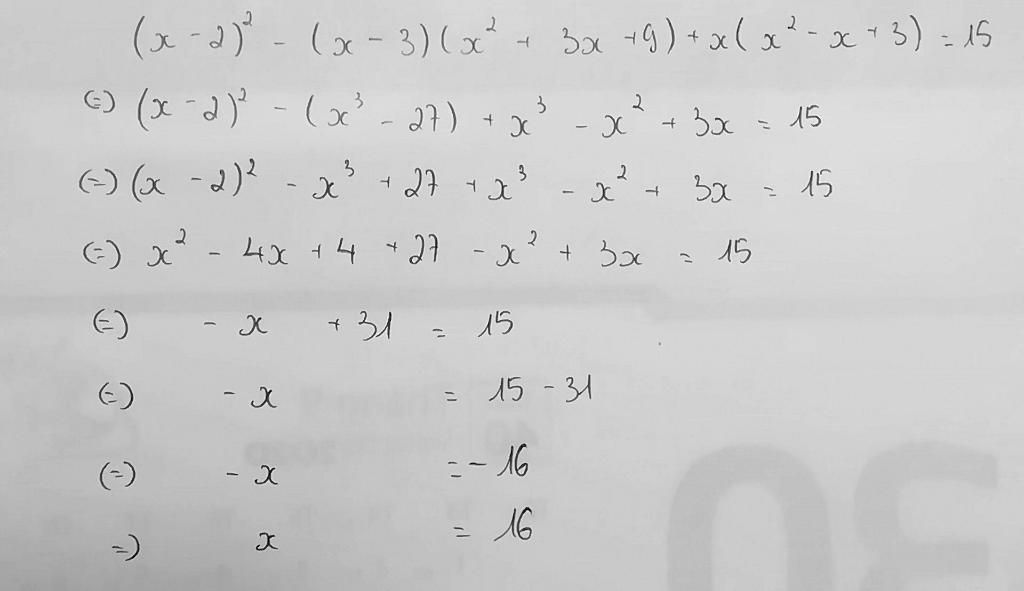 (x - 2)² - (x - 3)(x² + 3x + 9) + x(x² - x + 3) = 15
(=) (x - 2)² - (x³ - 27) + x³ - x² + 3x = 15
(=) (x - 2)² - x³ + 27 + x³ - x² + 3x = 15
(=) x² - 4x + 4 + 27 - x² + 3x = 15
(=) - x + 31 = 15
(=) - x = 15 - 31
(=) - x = - 16
=) x = 16
30